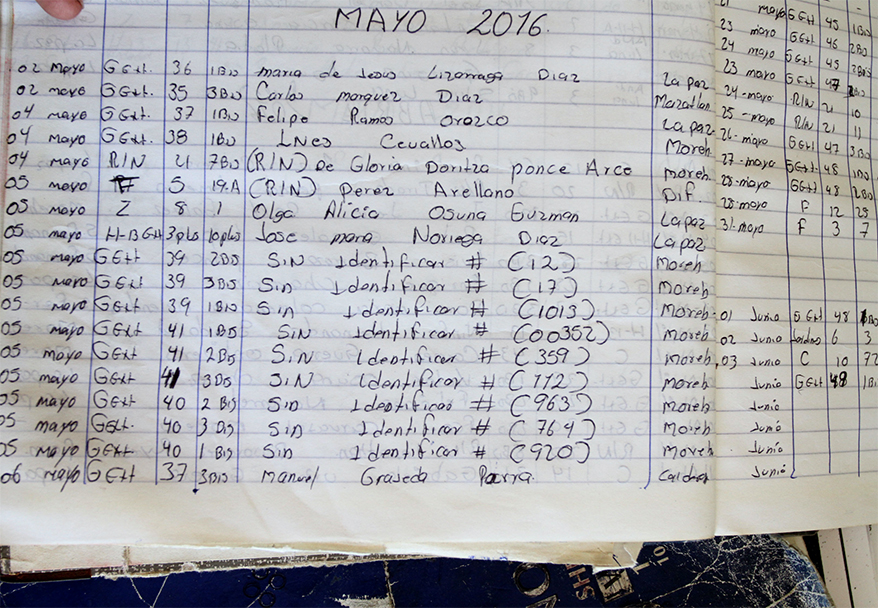 MAYO 2016.
02 mayo GExt. 36 1Bis maria de Jesus Lizarraga Diaz La paz
02 mayo GExt. 35 3Bis Carlos marquez Diaz Mazatlan
04 mayo GExt. 37 1Bis Felipe Ramos Orozco La paz
04 mayo GExt. 38 1Bis INes Cevallos Moreh
04 mayo R/N 21 7Bis (R/N) De Gloria Doritza ponce Arce moreh
05 mayo F 5 19.A (R/N) perez Arellano Dif.
05 mayo Z 8 1 Olga Alicia Osuna Guzman La paz
05 mayo H-BGH 3plas 10plas Jose maria Noriega Diaz La paz
05 mayo GExt 39 2Bis SiN Identificar # (12) moreh
05 mayo GExt 39 3Bis SiN Identificar # (17) moreh
05 mayo GExt 39 1Bis Sin Identificar # (1013) moreh
05 mayo GExt 41 1Bis SiN Identificar # (00352) moreh
05 mayo GExt 41 2Bis SiN Identificar # (359) moreh
05 mayo GExt 41 3Bis SiN Identificar # (112) moreh
05 mayo GExt 40 2 Bis Sin Identificar # (963) moreh
05 mayo GExt. 40 3 Bis Sin Identificar # (764) moreh
05 mayo GExt 40 1 Bis Sin Identificar # (920) moreh
06 mayo GExt 37 3Bis manuel Graseda Parra.
21 mayo GExt 45 1Bis
23 mayo GExt 46 2Bis
24 mayo GExt 45 2Bis
23 mayo GExt 47
24-mayo R/N 21 10
25-mayo R/N 21 11
26-mayo GExt 47 3Bis
27-mayo GExt 48 1Bis
28-mayo GExt 48 2Bis
28-mayo F 12 28
31-mayo F 3 7
01 Junio GExt 48
02 Junio 6 3
03 Junio C 10 72
Junio GExt 48 1Bis
Junio
Junio
Junio